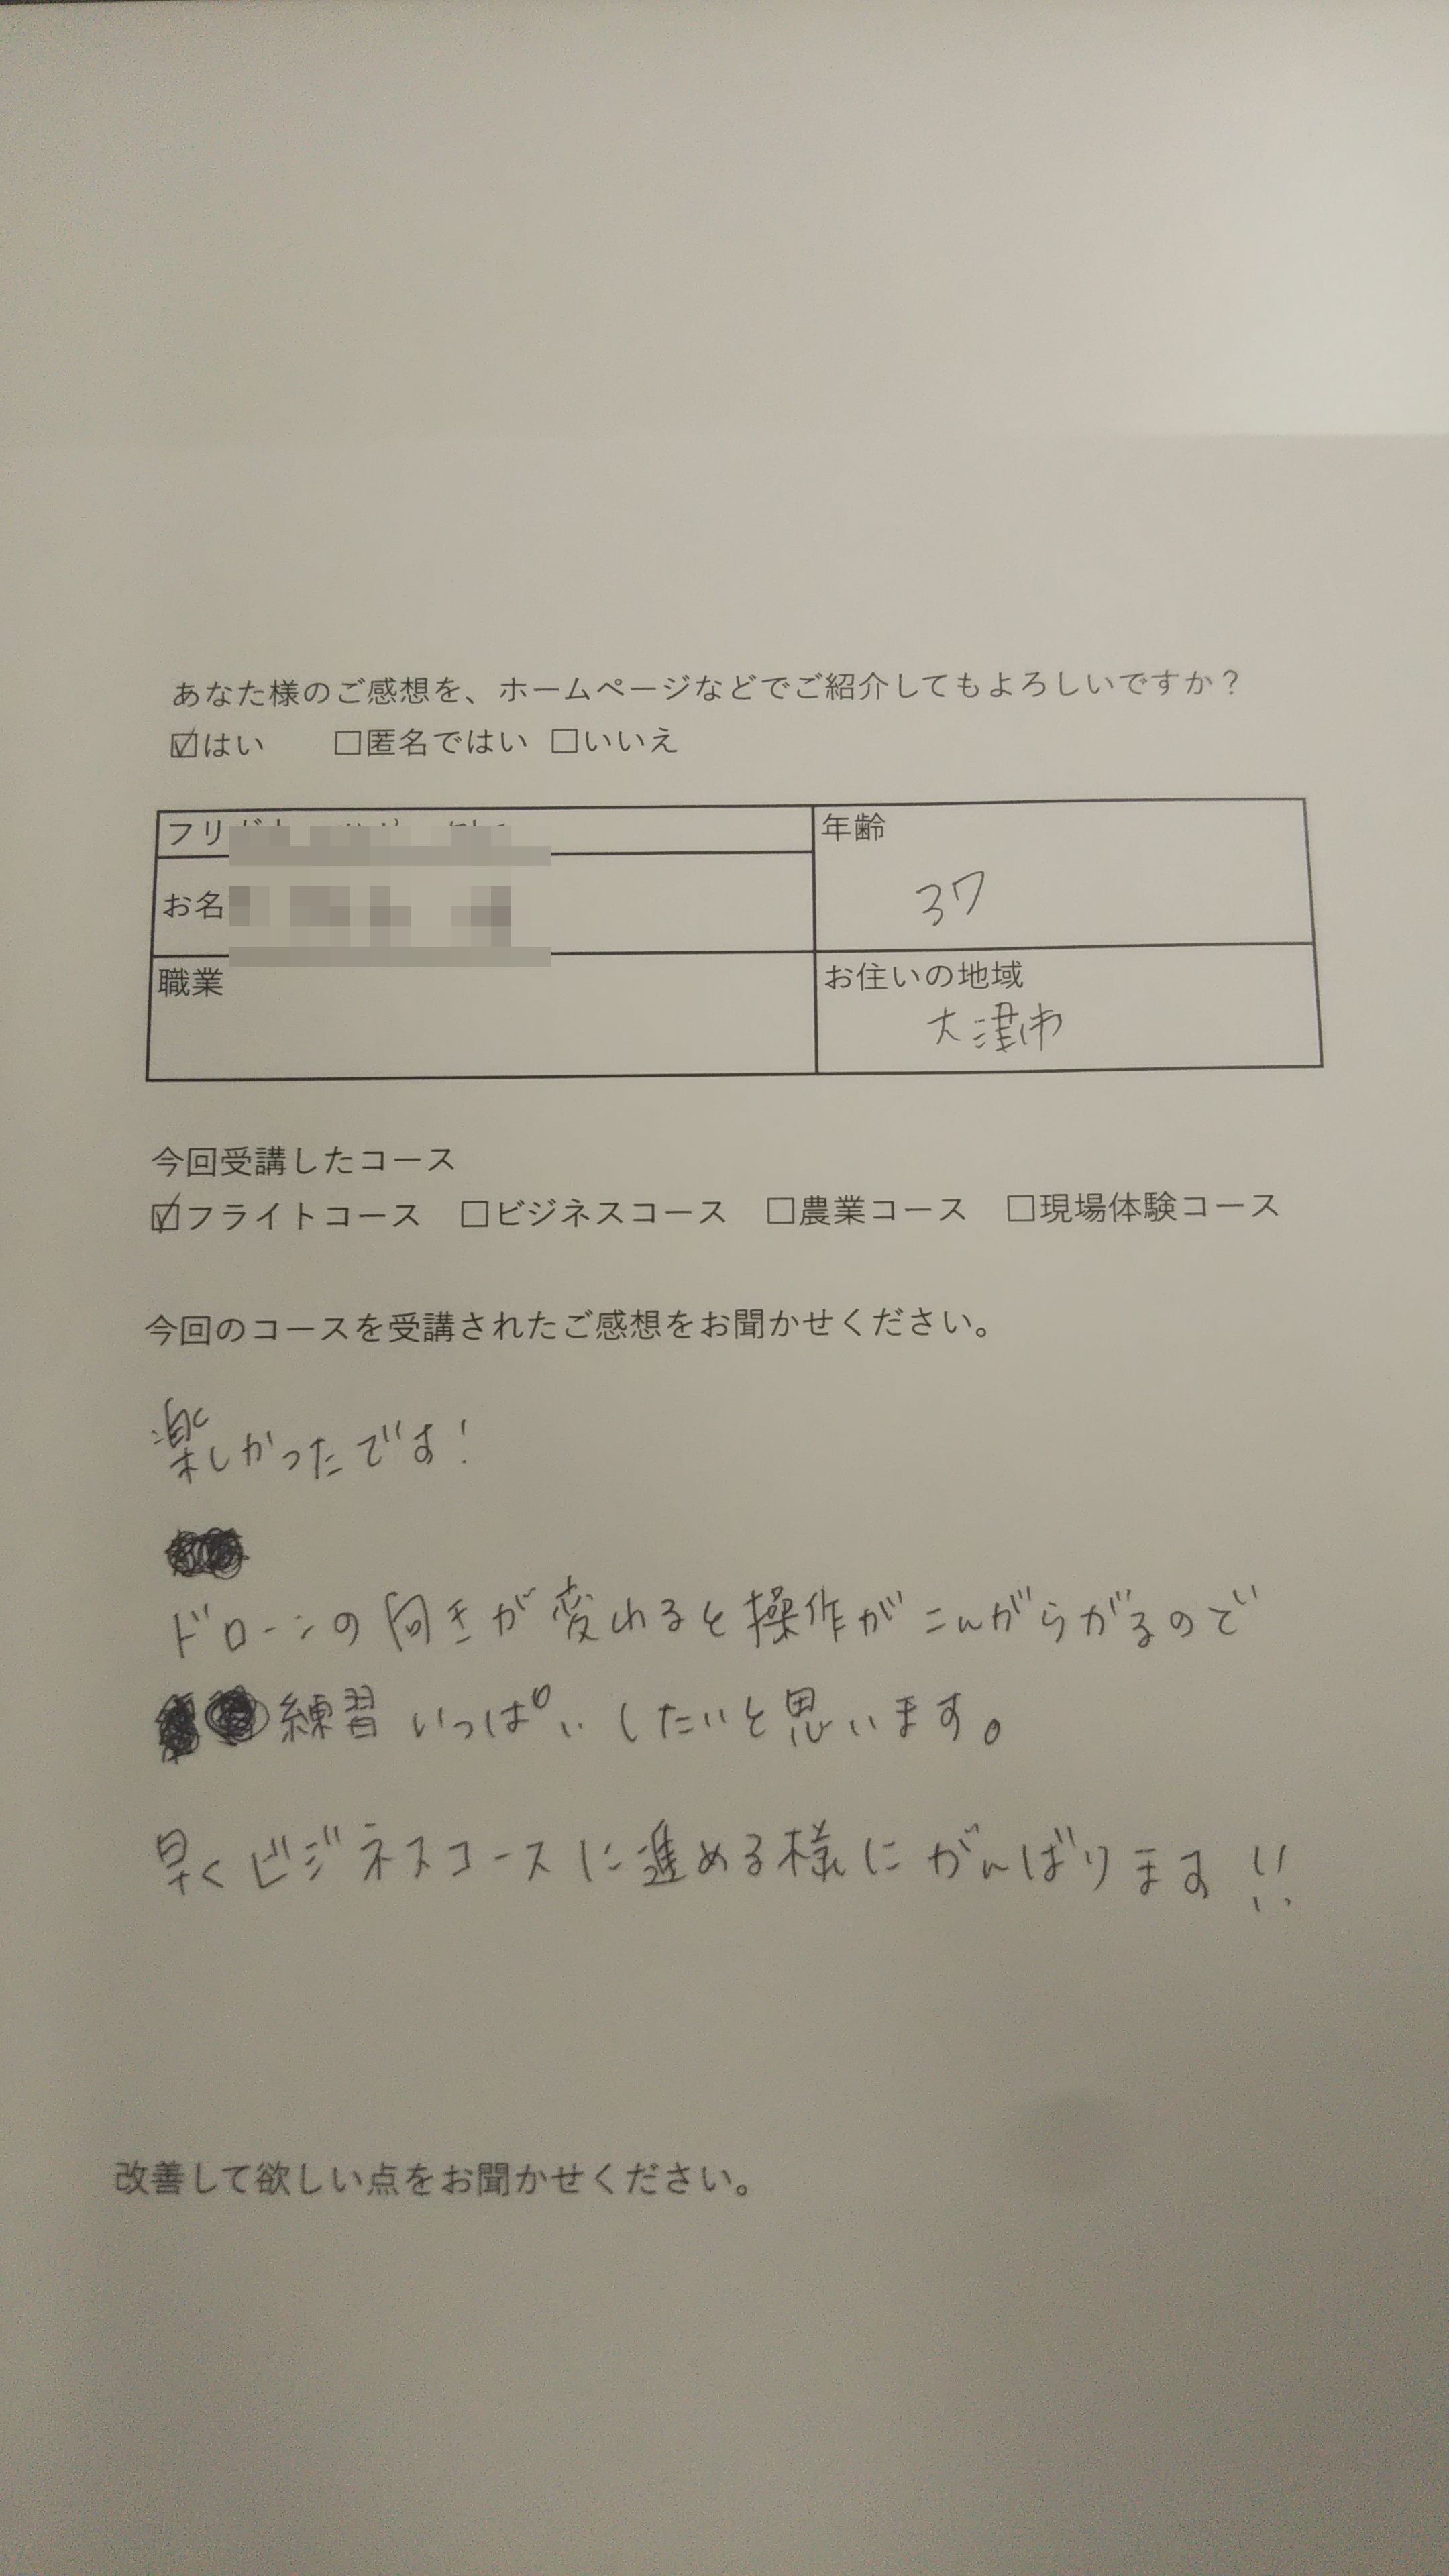 あなた様のご感想を、ホームページなどでご紹介してもよろしいですか？
☑はい □匿名ではい □いいえ
フリ
年齢
37
お名
職業
お住いの地域
大津市
今回受講したコース
☑フライトコース □ビジネスコース □農業コース □現場体験コース
今回のコースを受講されたご感想をお聞かせください。
楽しかったです！
ドローンの向きが変れると操作がこんがらがるので
練習いっぱいしたいと思います。
早くビジネスコースに進める様にがんばります!!
改善して欲しい点をお聞かせください。